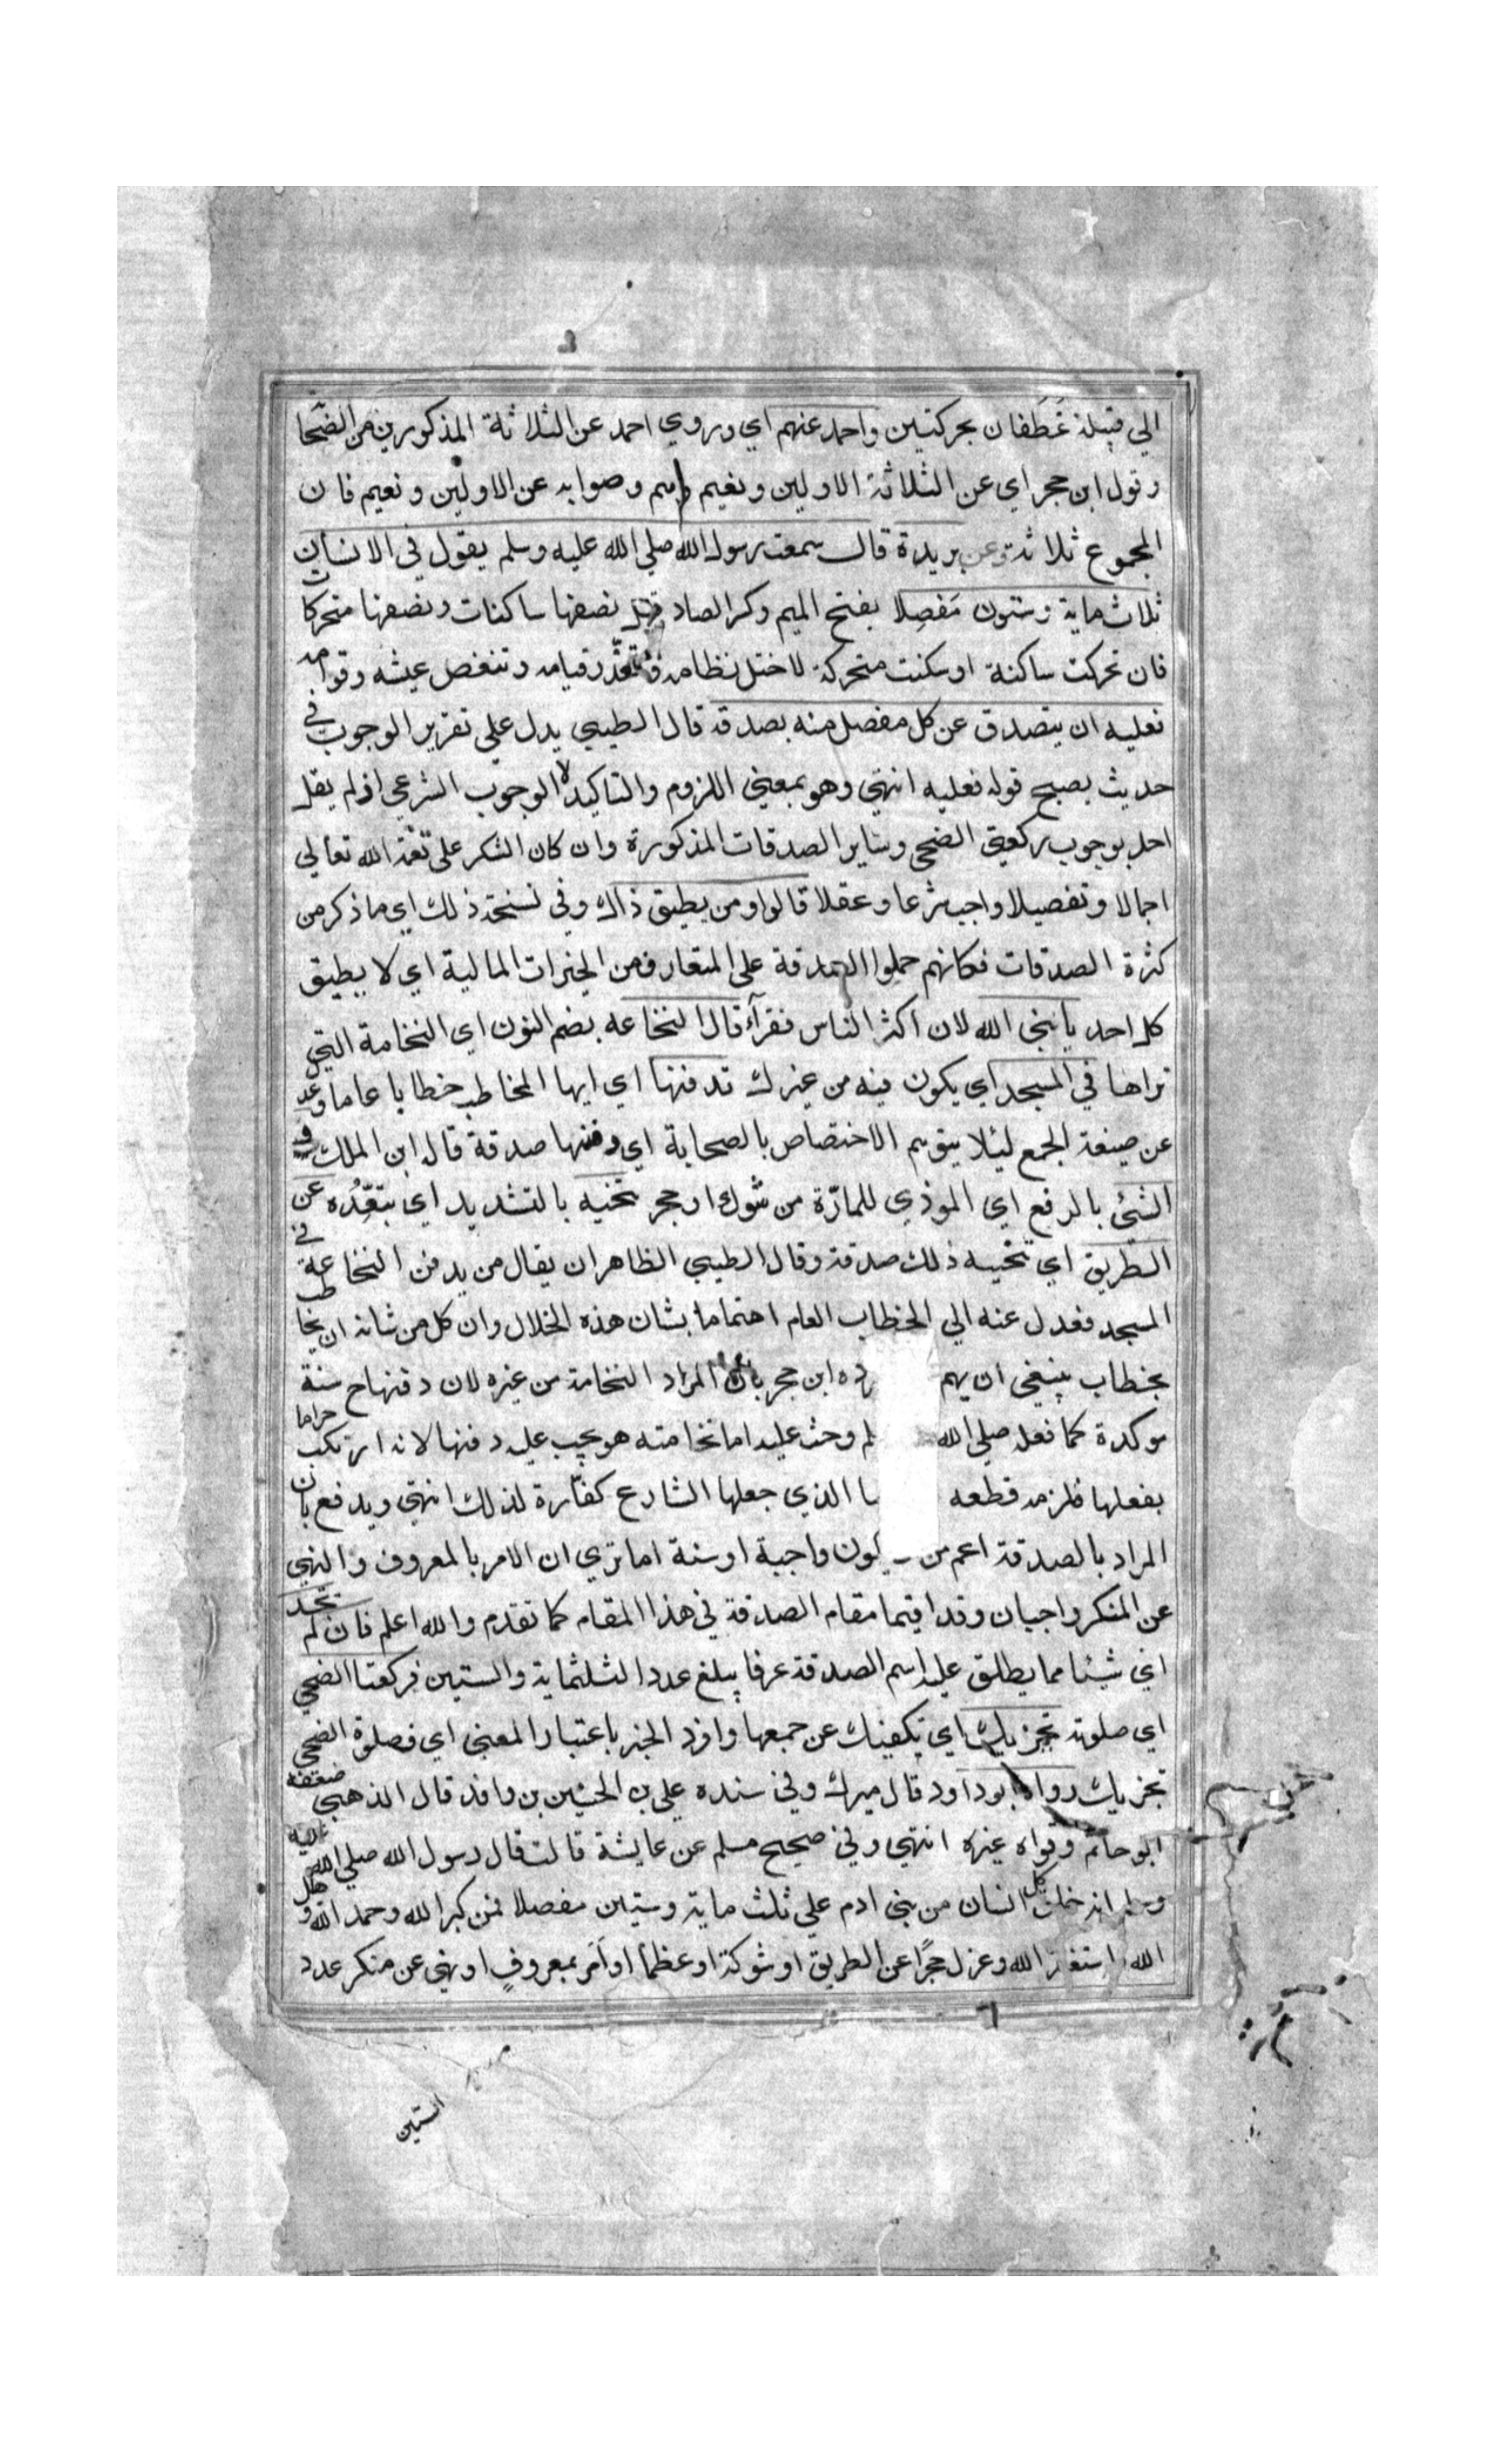 الي قبيلة غَطَفان بحركتين واحمد عنهم اي وروي احمد عن الثلاثة المذكورين من الضحا
وقول ابن حجر اي عن الثلاثة الاولين ونعيم وهم وصوابه عن الاولين ونعيم فان
المجموع ثلاثة وعن بريدة قال سمعت رسول الله صلي الله عليه وسلم يقول في الانسان
ثلاث ماية وستون مَفصِلا بفتح الميم وكسر الصاد قيل نصفها ساكنات ونصفها متحركات
فان تحركت ساكنة او سكنت متحركة لاختل نظامه وتعذّر قيامه وتنغص عيشه وقوامه
فعليه ان يتصدق عن كل مفصل منه بصدقة قال الطيبي يدل علي تقرير الوجوب في
حديث يصبح قوله فعليه انتهي وهو بمعني اللزوم والتاكيد لا الوجوب الشرعي اذ لم يقل
احد بوجوب ركعتي الضحي وساير الصدقات المذكورة وان كان الشكر علي نعمة الله تعالي
اجمالا وتفصيلا واجب شرعا وعقلا قالوا ومن يطيق ذاك وفي نسخة ذلك اي ما ذكر من
كثرة الصدقات فكانهم حملوا الصدقة علي المتعارف من الخيرات المالية اي لا يطيق
كل احد يا نبي الله لان اكثر الناس فقرآء قال النخاعه بضم النون اي النخامة التي
تراها في المسجد اي يكون فيه من غيرك تدفنها اي ايها المخاطب خطابا عاما وعد
عن صيغة الجمع ليلا يتوهم الاختصاص بالصحابة اي دفنها صدقة قال ابن الملك و
الشئ بالرفع اي الموذي للمارّة من شوك او حجر تنحيه بالتشديد اي تبعّدُه عن
الطريق اي تنحيه ذلك صدقة وقال الطيبي الظاهر ان يقال من يدفن النخاعة في
المسجد فعدل عنه الي الخطاب العام اهتماما بشان هذه الخلال وان كل من شانه ان يخاطب
بخطاب ينبغي ان يهم رده ابن حجر بان المراد النخامة من غيره لان دفنها ح سنة
موكدة كما فعله صلي الله لم وحث عليه اما نخامته هو يجب عليه دفنها لانه ارتكب حراما
بفعلها فلزمه قطعه ا الذي جعلها الشارع كفّارة لذلك انتهي ويدفع بان
المراد بالصدقة اعم من يكون واجبة او سنة اما تري ان الامر بالمعروف والنهي
عن المنكر واجبان وقد اقيما مقام الصدقة في هذا المقام كما تقدم والله اعلم فان لم تجد
اي شيئا مما يطلق عليه اسم الصدقة عرفا يبلغ عدد الثلثماية والستين فركعتا الضحي
اي صلوته تجزيك اي تكفيك عن جميعها وافرد الخبر باعتبار المعني اي فصلوة الضحي
تجزيك رواه ابو داود قال ميرك وفي سنده علي بن الحسين بن واقد قال الذهبي ضعفه
ابو حاتم وقواه غيره انتهي وفي صحيح مسلم عن عايشة قالت قال رسول الله صلي الله عليه
وسلم انه خلق كل انسان من بني ادم علي ثلث ماية وستين مفصلا فمن كبر الله وحمد الله وهلل
الله استغفر الله وعزل حجرًا عن الطريق او شوكة او عظما او اَمر بمعروفٍ او نهي عن منكر عدد
الستين